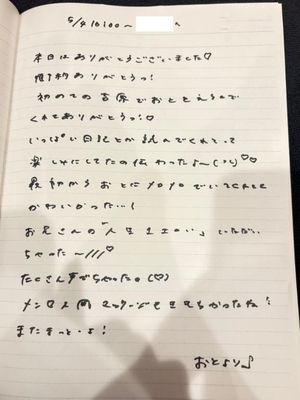 5/4 16:00〜 へ
本日はありがとうございました♡
指予約ありがとうっ!
初めての吉原でおとをえらんで
くれてありがとうっ♡
いっぱい日記とか読んでくれとって
楽しみにしてたの伝わったよ〜(>ᴗ<)♡♡
最初からおとにメロメロでいてくれてて
かわいかった…!
お兄さんの「人生で1エロい」いただい
ちゃった〜///♡
たくさん声でちゃった。(♡)
メンエス風マッサージもきもちかったね!
またきっと・よ!
おとより♪